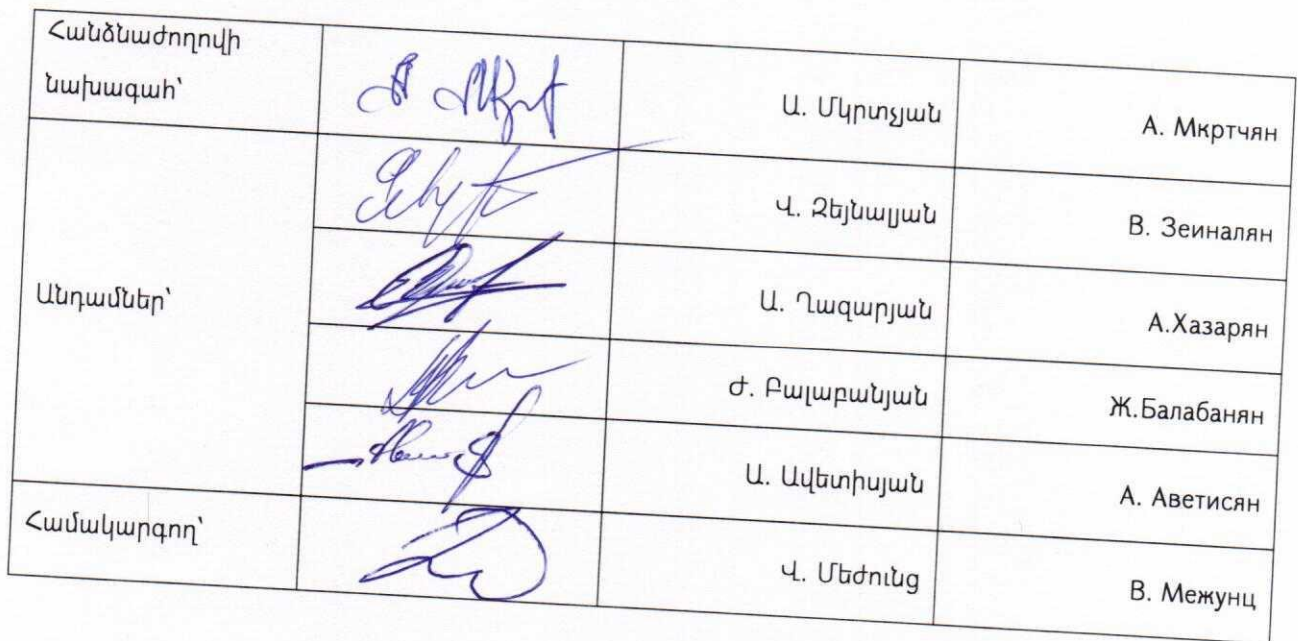 Հանձնաժողովի
նախագահ՝
Ա. Մկրտչյան
А. Мкртчян
Անդամներ՝
Վ. Զեյնալյան
В. Зеиналян
Ա. Ղազարյան
А.Хазарян
Ժ. Բալաբանյան
Ж.Балабанян
Ա. Ավետիսյան
А. Аветисян
Համակարգող՝
Վ. Մեժունց
В. Межунц